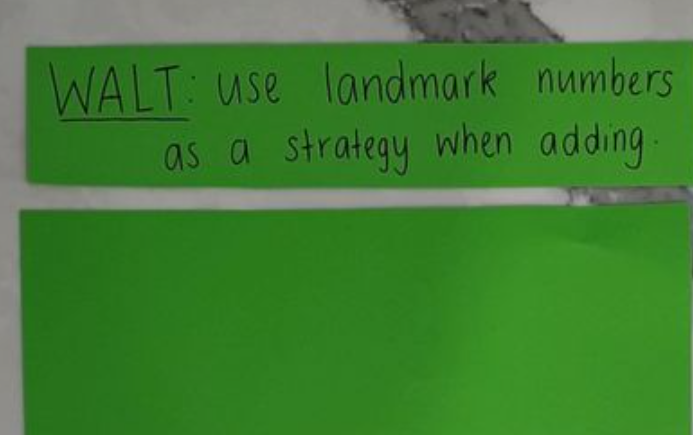 WALT: use landmark numbers
as a strategy when adding.